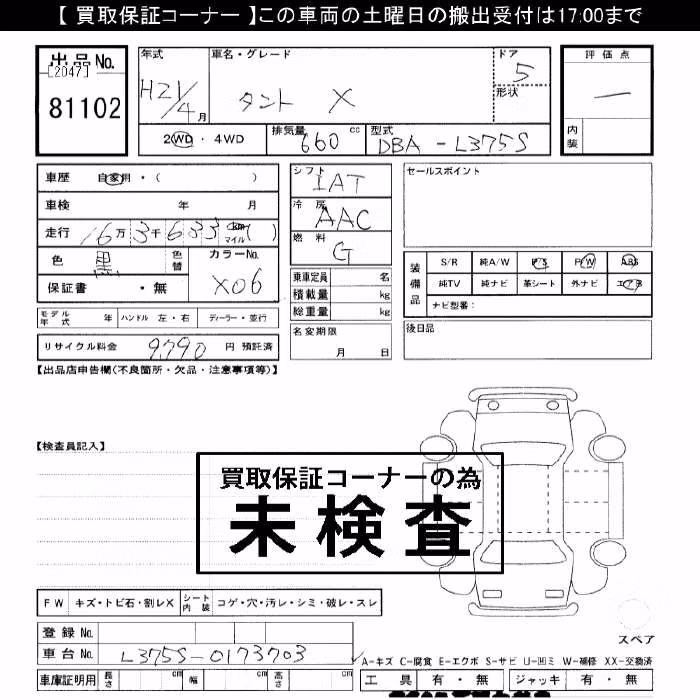 【 買取保証コーナー 】この車両の土曜日の搬出受付は17:00まで
出品No.
[2047]
81102
年式 車名・グレード ドア
H21/4月 タント X 5
形状
2WD・4WD 排気量 660 cc 型式 DBA-L375S
評価点
一
内装
車歴 自家用・( )
車検 年 月
走行 16万3千633 km マイル ( )
色 黒 色替 カラーNo. X06
保証書 ・無
モデル年式 年 ハンドル 左・右 ディーラー・並行
リサイクル料金 9,790 円 預託済
シフト IAT
冷房 AAC
燃料 G
乗車定員 名
積載量 kg
総重量 kg
名変期限
月 日
セールスポイント
装備品
S/R 純A/W P/S P/W ABS
純TV 純ナビ 革シート 外ナビ エアB
ナビ型番：
後日品
【出品店申告欄(不良箇所・欠品・注意事項等)】
【検査員記入】
買取保証コーナーの為
未検査
FW キズ・トビ石・割レX シート内装 コゲ・穴・汚レ・シミ・破レ・スレ
登録No.
車台No. L375S-0173703
車庫証明用 長さ cm 幅 cm 高さ cm
スペア
A-キズ C-腐食 E-エクボ S-サビ U-凹ミ W-補修 XX-交換済
工具 有・無 ジャッキ 有・無